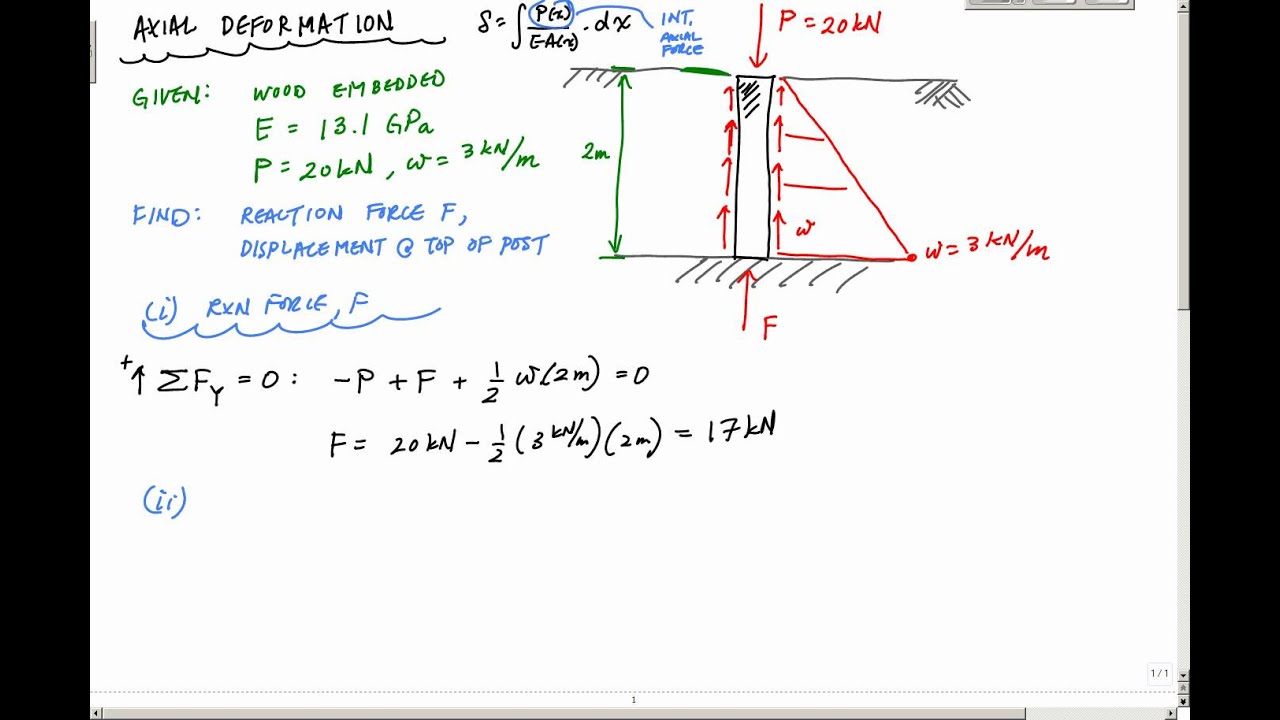 AXIAL DEFORMATION
δ = ∫ P(x)/E·A(x) · dx
INT. AXIAL FORCE
P = 20 kN
GIVEN: WOOD EMBEDDED
E = 13.1 GPa
P = 20 kN, w = 3 kN/m
2m
FIND: REACTION FORCE F,
DISPLACEMENT @ TOP OF POST
w
w = 3 kN/m
F
(i) RXN FORCE, F
+↑ ΣF_Y = 0 : -P + F + 1/2 w(2m) = 0
F = 20 kN - 1/2 (3 kN/m)(2m) = 17 kN
(ii)
1/1
1